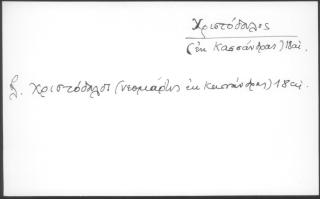 Χριστόδουλος
(ἐκ Κασσάνδρας) 18 αἰ.
Χριστόδουλος (νεομάρτυς ἐκ Κασσάνδρας) 18 αἰ.